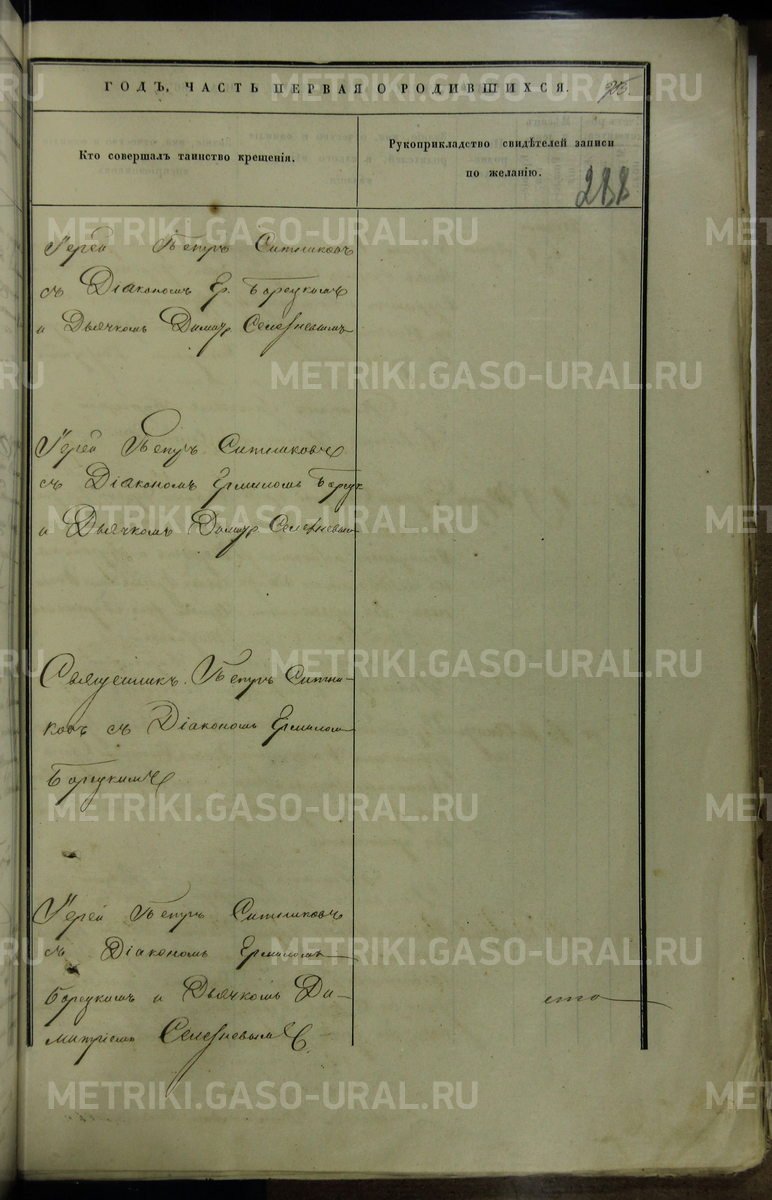 ГОДЪ, ЧАСТЬ ПЕРВАЯ О РОДИВШИХСЯ.
Кто совершалъ таинство крещенія.
Рукоприкладство свидѣтелей записи
по желанію.
288
Іерей Петръ Ситниковъ
съ Діакономъ Ер. Борецкимъ
и Дьячкомъ Димитр. Селезневымъ
Іерей Петръ Ситниковъ
съ Діакономъ Ермиломъ Борецк
и Дьячкомъ Димитр. Селезневым
Священникъ Петръ Ситни-
ковъ съ Діакономъ Ермиломъ
Борецкимъ
Іерей Петръ Ситниковъ
съ Діакономъ Ермиломъ
Борецкимъ и Дьячкомъ Ди-
митріемъ Селезневымъ
METRIKI.GASO-URAL.RU